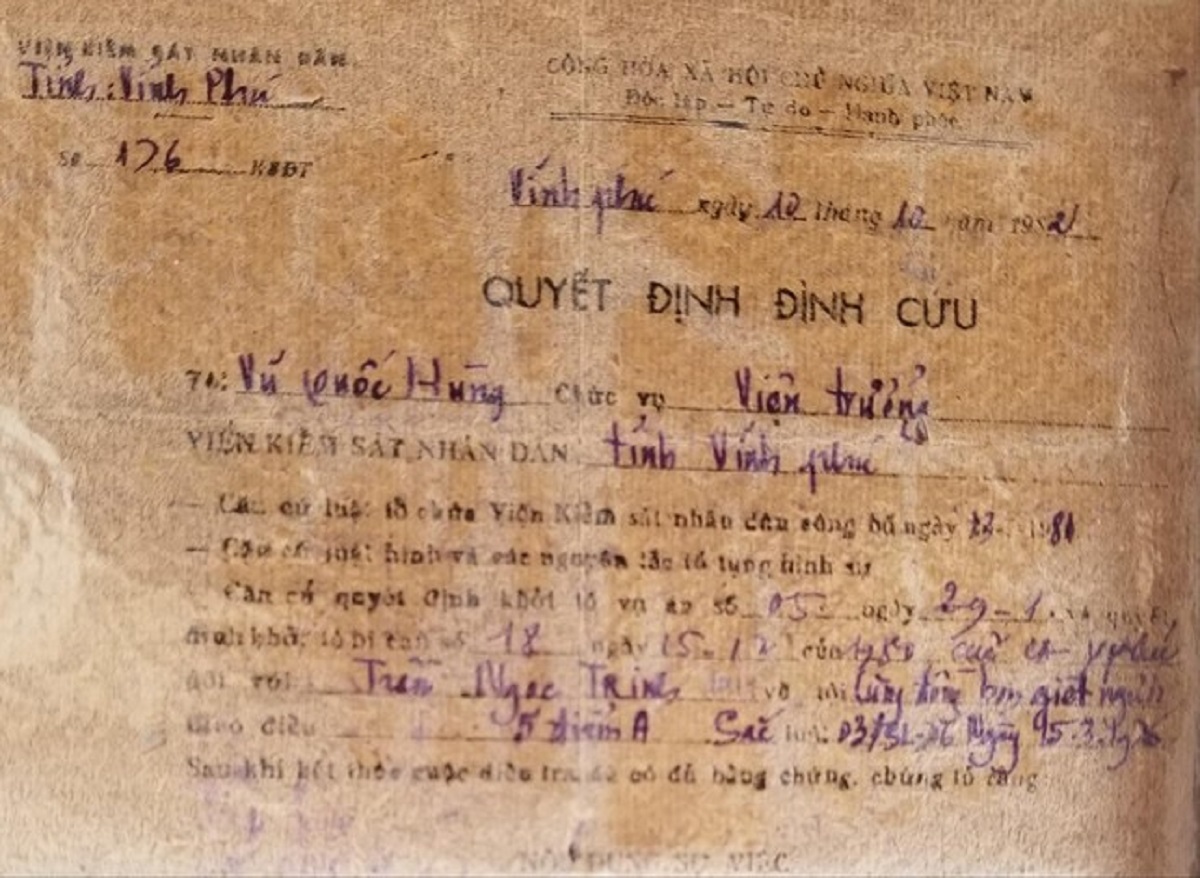 VIỆN KIỂM SÁT NHÂN DÂN
Tỉnh: Vĩnh Phú
CỘNG HÒA XÃ HỘI CHỦ NGHĨA VIỆT NAM
Độc lập — Tự do — Hạnh phúc
Số 176 KSĐT
Vĩnh phú ngày 10 tháng 10 năm 1982
QUYẾT ĐỊNH ĐÌNH CỨU
Tôi: Vũ Quốc Hùng Chức vụ Viện trưởng
VIỆN KIỂM SÁT NHÂN DÂN tỉnh Vĩnh phú
— Căn cứ luật tổ chức Viện Kiểm sát nhân dân công bố ngày
— Căn cứ luật hình và các nguyên tắc tố tụng hình sự
— Căn cứ quyết định khởi tố vụ án số 05 ngày 29-1 quyết
định khởi tố bị can số 18 ngày 15-12 của
đối với Trần Ngọc Trinh về tội giết người
theo điều 5 điểm A Sắc luật 03/SL-76 Ngày
Sau khi kết thúc cuộc điều tra đã có đủ bằng chứng, chứng tỏ rằng
NỘI DUNG SỰ VIỆC